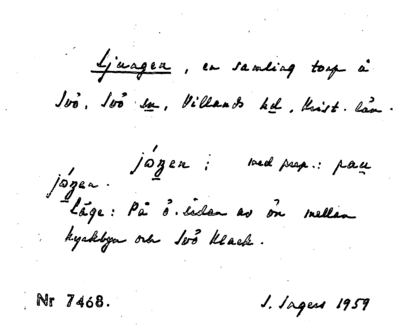 Ljungen, en samling torp å
Ivö, Ivö sn, Villands hd, Krist. län.
jɔ́ŋen ; med prep.: pau
jɔ́ŋen.
Läge: På ö. sidan av ön mellan
kyrkbyn och Ivö Klack.
Nr 7468.
I. Ingers 1959